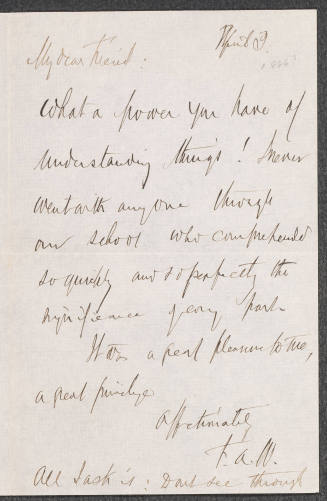 April 9.
1886?
My dear friend:
What a power you have of
understanding things! I never
went with anyone through
our school who comprehended
so quickly and so perfectly the
significance of every part.
It was a great pleasure to me,
a great privilege
Affectionately
F. A. W.
All I ask is: Don't see through